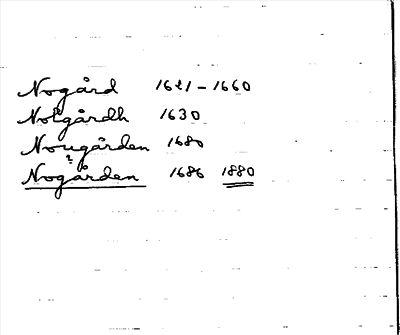 Nogård 1621-1660
Nolgårdh 1630
Nougården 1680
?
Nogården 1686 1880